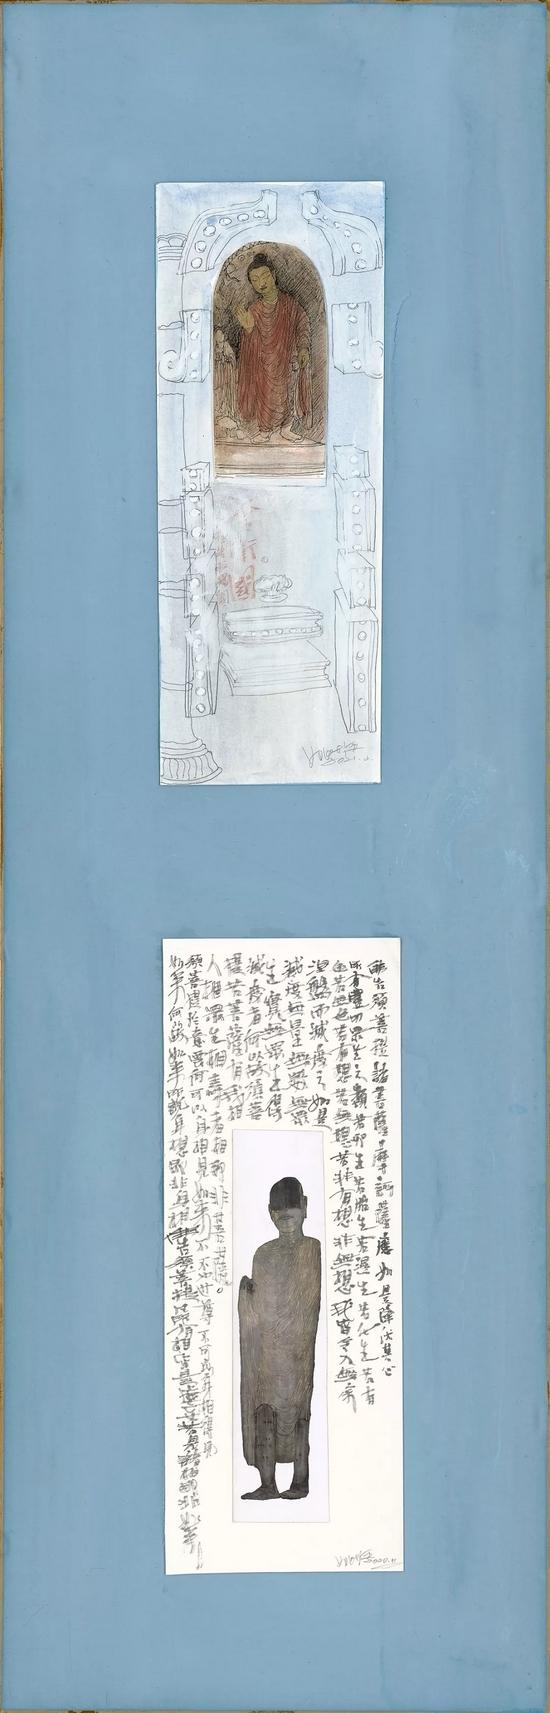 佛告須菩提諸菩薩摩訶薩應如是降伏其心
所有一切眾生之類若卵生若胎生若濕生若化生若有
色若無色若有想若無想若非有想非無想我皆令入無余
涅槃而滅度之如是
滅度無量無數無眾
生實無眾生得
滅度者何以故須菩
提若菩薩有我相
人相眾生相壽者相即非菩薩。
須菩提於意云何可以身相見如来不不也世尊不可以身相得見
如来何以故如来所說身相即非身相佛告須菩提凡所有相皆是虛妄若見諸相即非如来